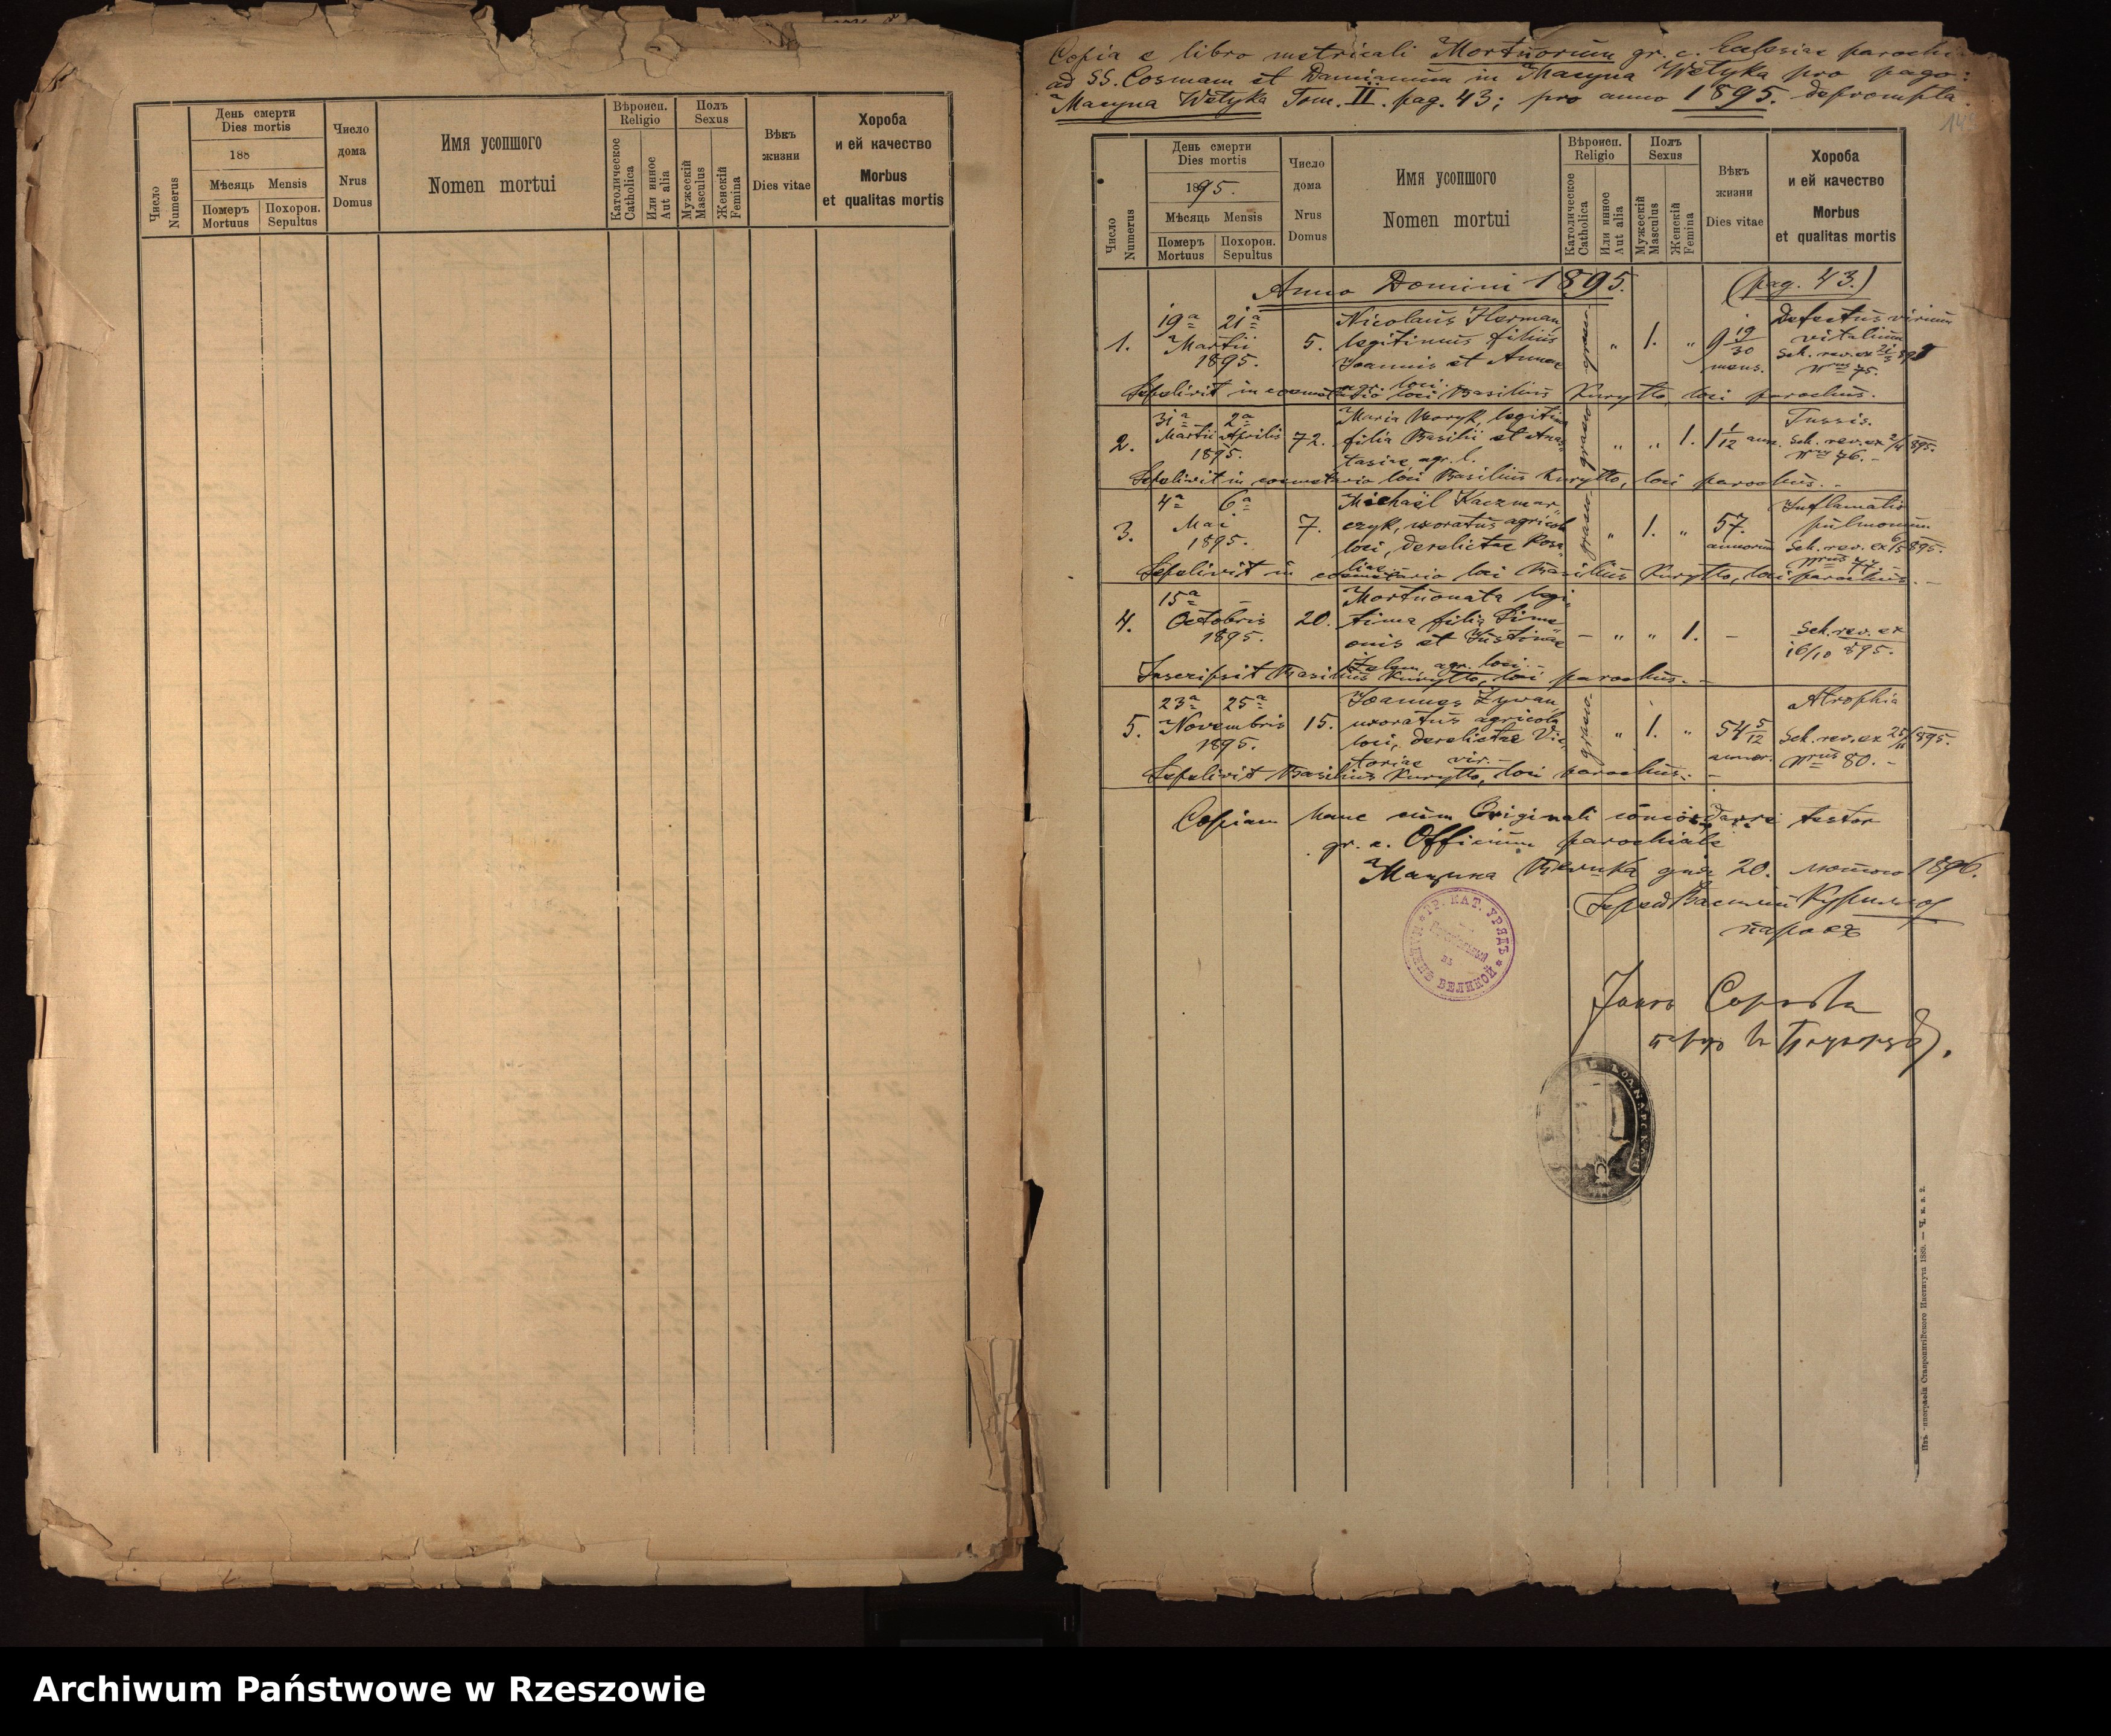 День смерти
Dies mortis
188
Мѣсяць Mensis
Померъ
Mortuus
Похорон.
Sepultus
Число
Numerus
Число
дома
Nrus
Domus
Имя усопшого
Nomen mortui
Вѣроисп.
Religio
Католическое
Catholica
Или инное
Aut alia
Полъ
Sexus
Мужескій
Masculus
Женскій
Femina
Вѣкъ
жизни
Dies vitae
Хороба
и ей качество
Morbus
et qualitas mortis
Copia e libro metricali Mortuorum gr. c. Ecclesiae
ad SS. Cosmam et Damianum in Macyna Wełyka pro pago:
Macyna Wełyka Tom. II. pag. 43; pro anno 1895. deprompta.
День смерти
Dies mortis
1895.
Мѣсяць Mensis
Померъ
Mortuus
Похорон.
Sepultus
Число
Numerus
Число
дома
Nrus
Domus
Имя усопшого
Nomen mortui
Вѣроисп.
Religio
Католическое
Catholica
Или инное
Aut alia
Полъ
Sexus
Мужескій
Masculus
Женскій
Femina
Вѣкъ
жизни
Dies vitae
Хороба
и ей качество
Morbus
et qualitas mortis
Anno Domini 1895. (pag. 43.)
1.
19a 21a
Martii
1895.
5.
Nicolaus Herman,
legitimus filius
Joannis et Annae
agr. loci.
" 1. "
9 19/30
mens.
Defectus virium
vitalium
Sch. rev. ex
Nrus 75.
Sepelivit in coemeterio loci Basilius Kuryłło, loci parochus.
2.
31a 2a
Martii Aprilis
1895.
72.
filia Basilii et Anas
tasiae agr. l.
" " 1.
1 1/12 ann.
Tussis.
Sch. rev. ex 2/4 895.
Nrus 76. -
Sepelivit in coemeterio loci Basilius Kuryłło, loci parochus. -
3.
4a 6a
Mai
1895.
7.
Michaël Kaczmar„
czyk, uxoratus agricola
loci, derelictae Rosa„
liae
" 1. "
57.
annorum
Inflamatio
pulmonum
Sch. rev. ex 6/5 895.
Nrus 77. -
Sepelivit in coemeterio loci Basilius Kuryłło, loci parochus. -
4.
15a -
Octobris
1895.
20.
Mortuonata legi„
tima filia Sime
onis et Justinae
agr. loci. -
- " " 1. -
Sch. rev. ex
16/10 895.
Inscripsit Basilius Kuryłło, loci parochus. -
5.
23a 25a
Novembris
1895.
15.
Joannes Zywan,
uxoratus agricola
loci, derelictae Vic„
toriae vir. -
" 1. "
54 5/12
annor.
Atrophia
Sch. rev. ex 25/11 895.
Nrus 80. -
Sepelivit Basilius Kuryłło, loci parochus. -
Copiam hanc cum Originali concordare testor
gr. c. Officium parochiale
Мацина Велика дня 20. лютого 1896.
Василий Курилло
парох
ГР. КАТ. УРЯДЪ
ВЕЛИКОЙ
Изъ типографіи Ставропигійского Института 1889. — Ч. к. в. 2.
Archiwum Państwowe w Rzeszowie